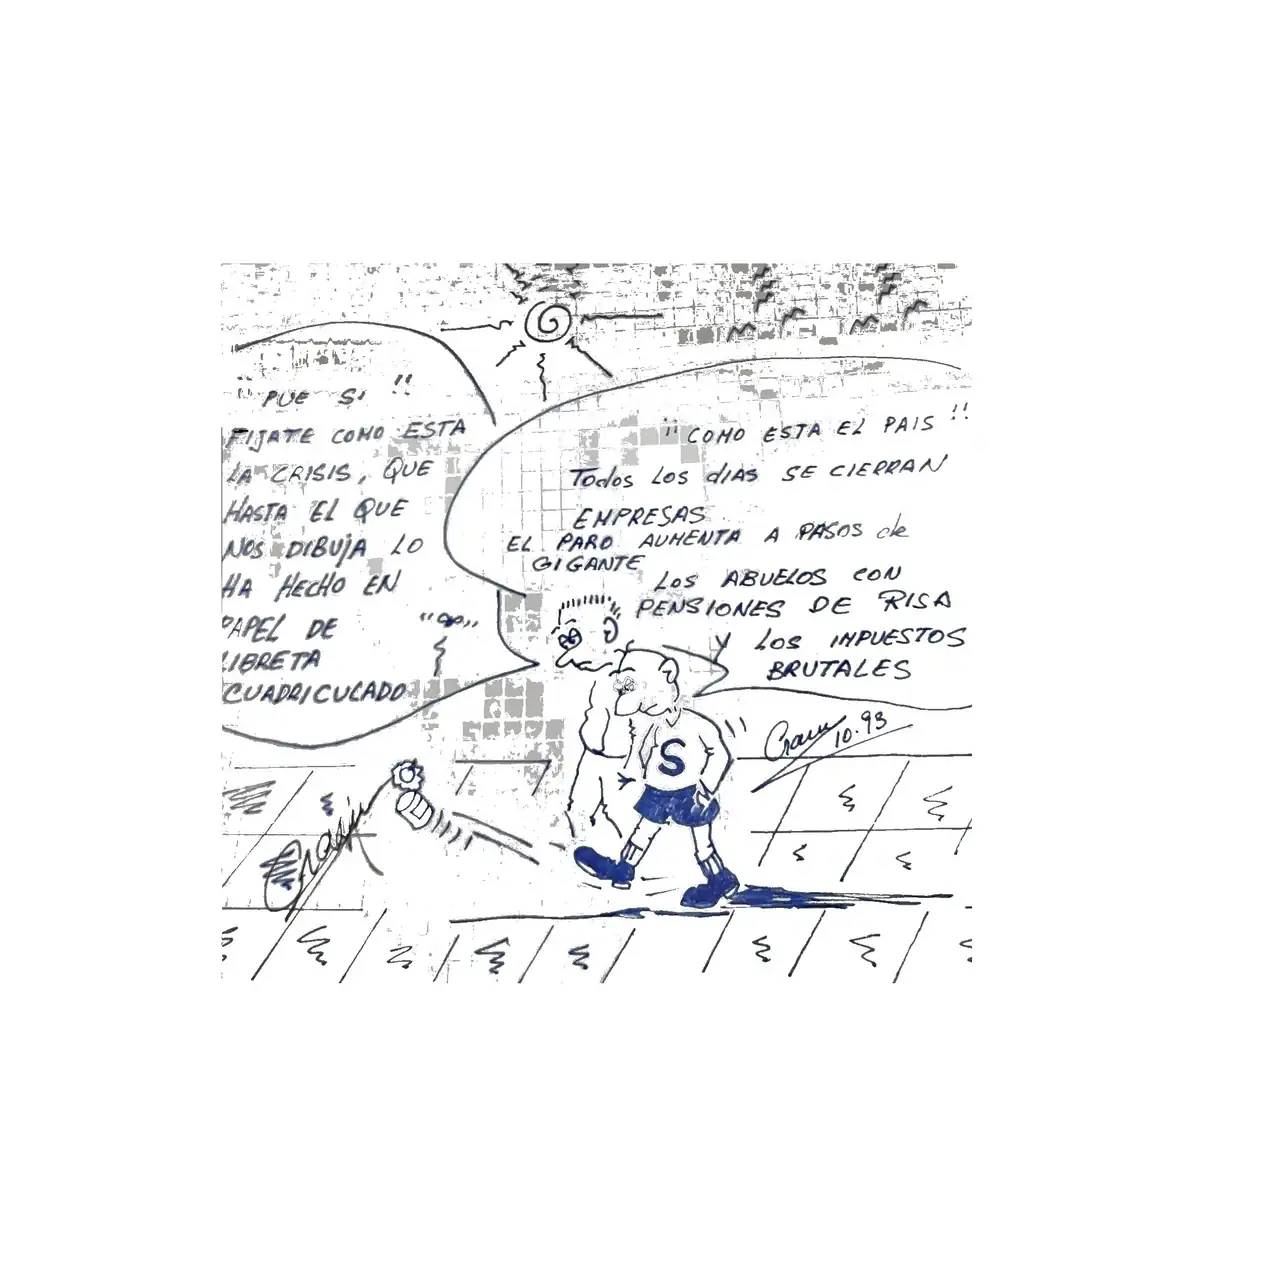 ¡¡ COMO ESTA EL PAIS !!
Todos LOS dIAS SE CIERRAN
EMPRESAS
EL PARO AUMENTA A PASOS de
GIGANTE
LOS ABUELOS CON
PENSIONES DE RISA
Y LOS IMPUESTOS
BRUTALES
¡¡ PUE SI !!
FIJATE COMO ESTA
LA CRISIS, QUE
HASTA EL QUE
NOS DIBUJA LO
HA HECHO EN
PAPEL DE
LIBRETA
CUADRICULADO
S
10.93